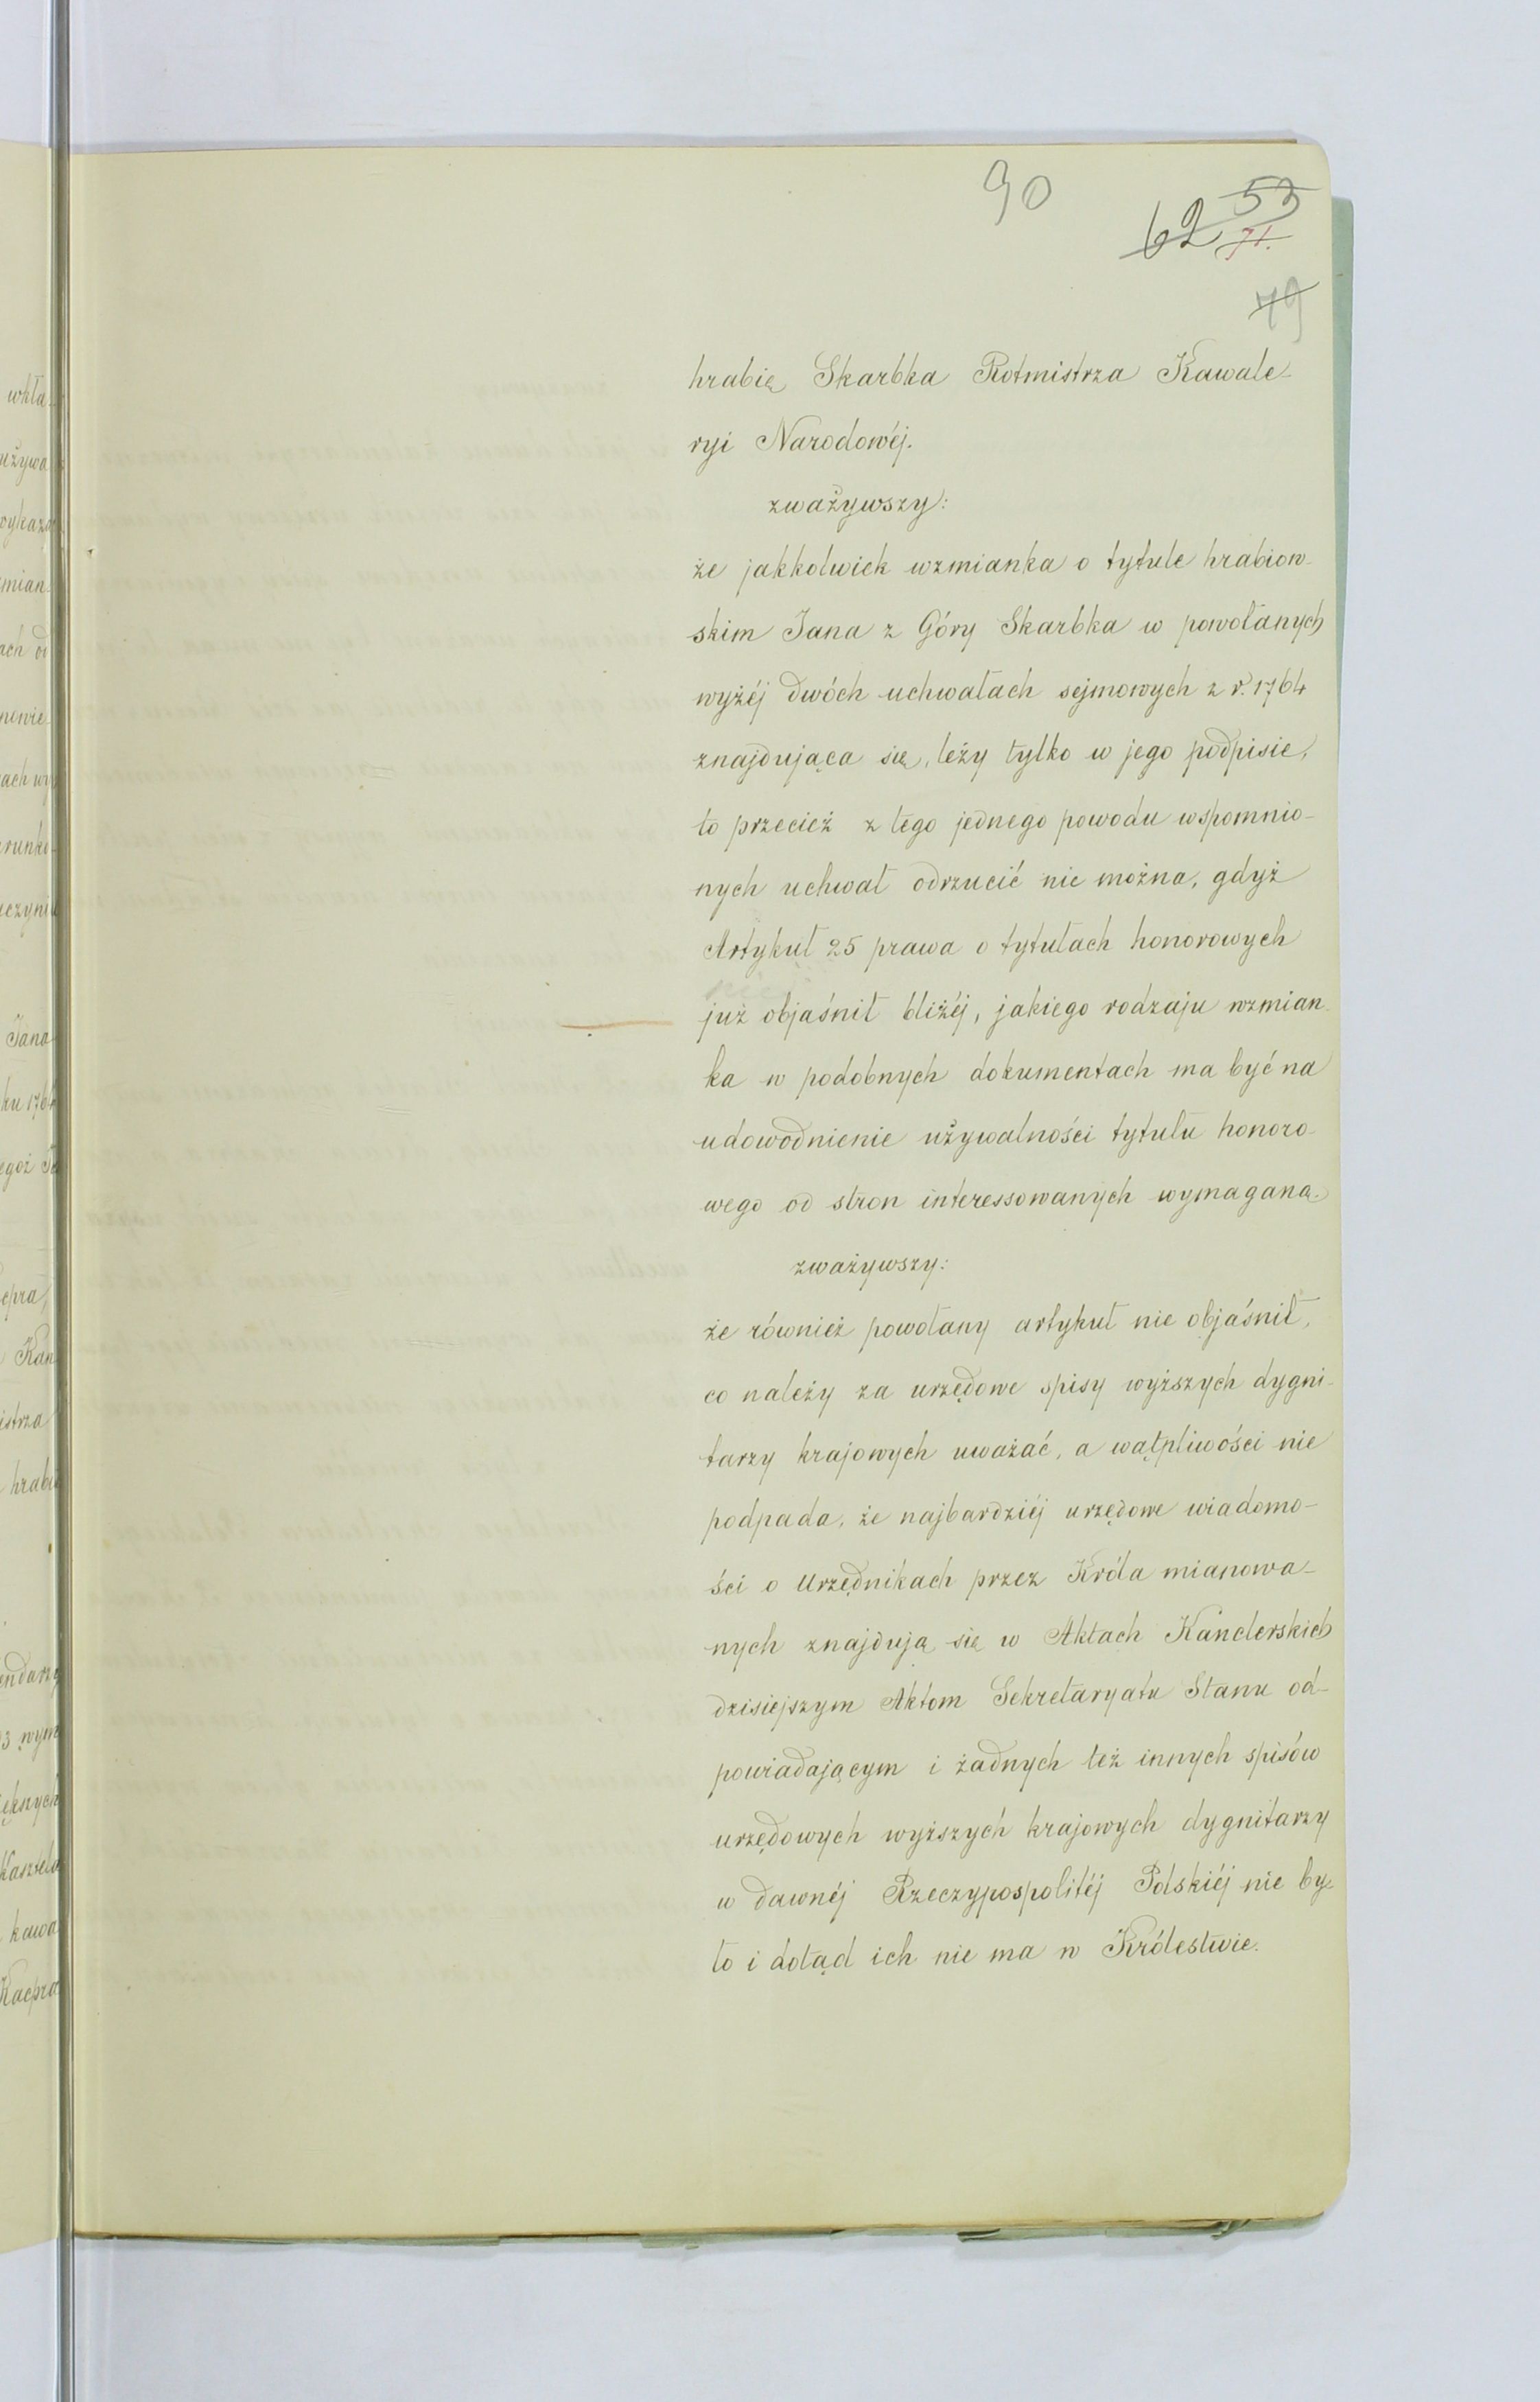 90
62 53
71.
79
hrabię Skarbka Rotmistrza Kawale-
ryi Narodowéj.
zważywszy:
że jakkolwiek wzmianka o tytule hrabiow-
skim Jana z Góry Skarbka w powołanych
wyżéj dwóch uchwałach sejmowych z r. 1764
znajdująca się, leży tylko w jego podpisie,
to przecież z tego jednego powodu wspomnio-
nych uchwał odrzucić nie można, gdyż
Artykuł 25 prawa o tytułach honorowych
już objaśnił bliżéj, jakiego rodzaju wzmian-
ka w podobnych dokumentach ma być na
udowodnienie używalności tytułu honoro-
wego od stron interessowanych wymaganą.
zważywszy:
że również powołany artykuł nie objaśnił,
co należy za urzędowe spisy wyższych dygni-
tarzy krajowych uważać, a wątpliwości nie
podpada, że najbardziéj urzędowe wiadomo-
ści o Urzędnikach przez Króla mianowa-
nych znajdują się w Aktach Kanclerskich
dzisiejszym Aktom Sekretaryatu Stanu od-
powiadającym i żadnych też innych spisów
urzędowych wyższych krajowych dygnitarzy
w dawnéj Rzeczypospolitéj Polskiéj nie by-
ło i dotąd ich nie ma w Królestwie.